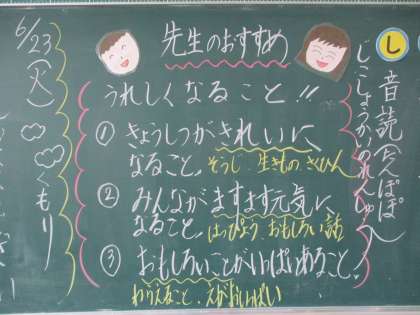 し
音読(たんぽぽ)
じこしょうかいのれんしゅう
先生のおすすめ
うれしくなること!!
① きょうしつがきれいに
なること。
そうじ、生きもの、きひん
② みんながますます元気に
なること。
はっぴょう、おもしろい話
③ おもしろいことがいっぱいあること。
わりえること、えがおいっぱい
6/23(火)
くもり